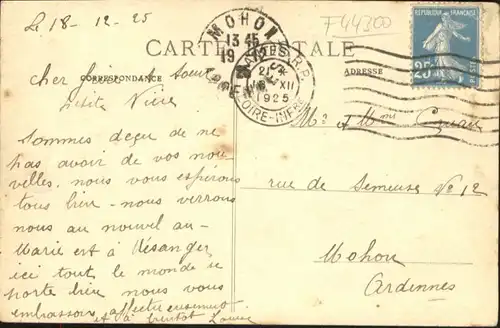 Le 18-12-25
F44300
CARTE POSTALE
CORRESPONDANCE
ADRESSE
MOHON
13 45
19
NANTES R.P.
21
XII
1925
LOIRE-INFRE
REPUBLIQUE FRANÇAISE
25c
POSTES
cher frère et soeur
petite Nièce
Sommes deçu de ne
pas avoir de vos nou-
velles, nous vous espérons
tous bien - nous verrons
nous au nouvel an -
Marie est à Désanger
ici tout le monde se
porte bien nous vous
embrassons affectueusement
et à bientôt Louise
Mr et Mme
rue de Semeuse No 12
Mohon
Ardennes